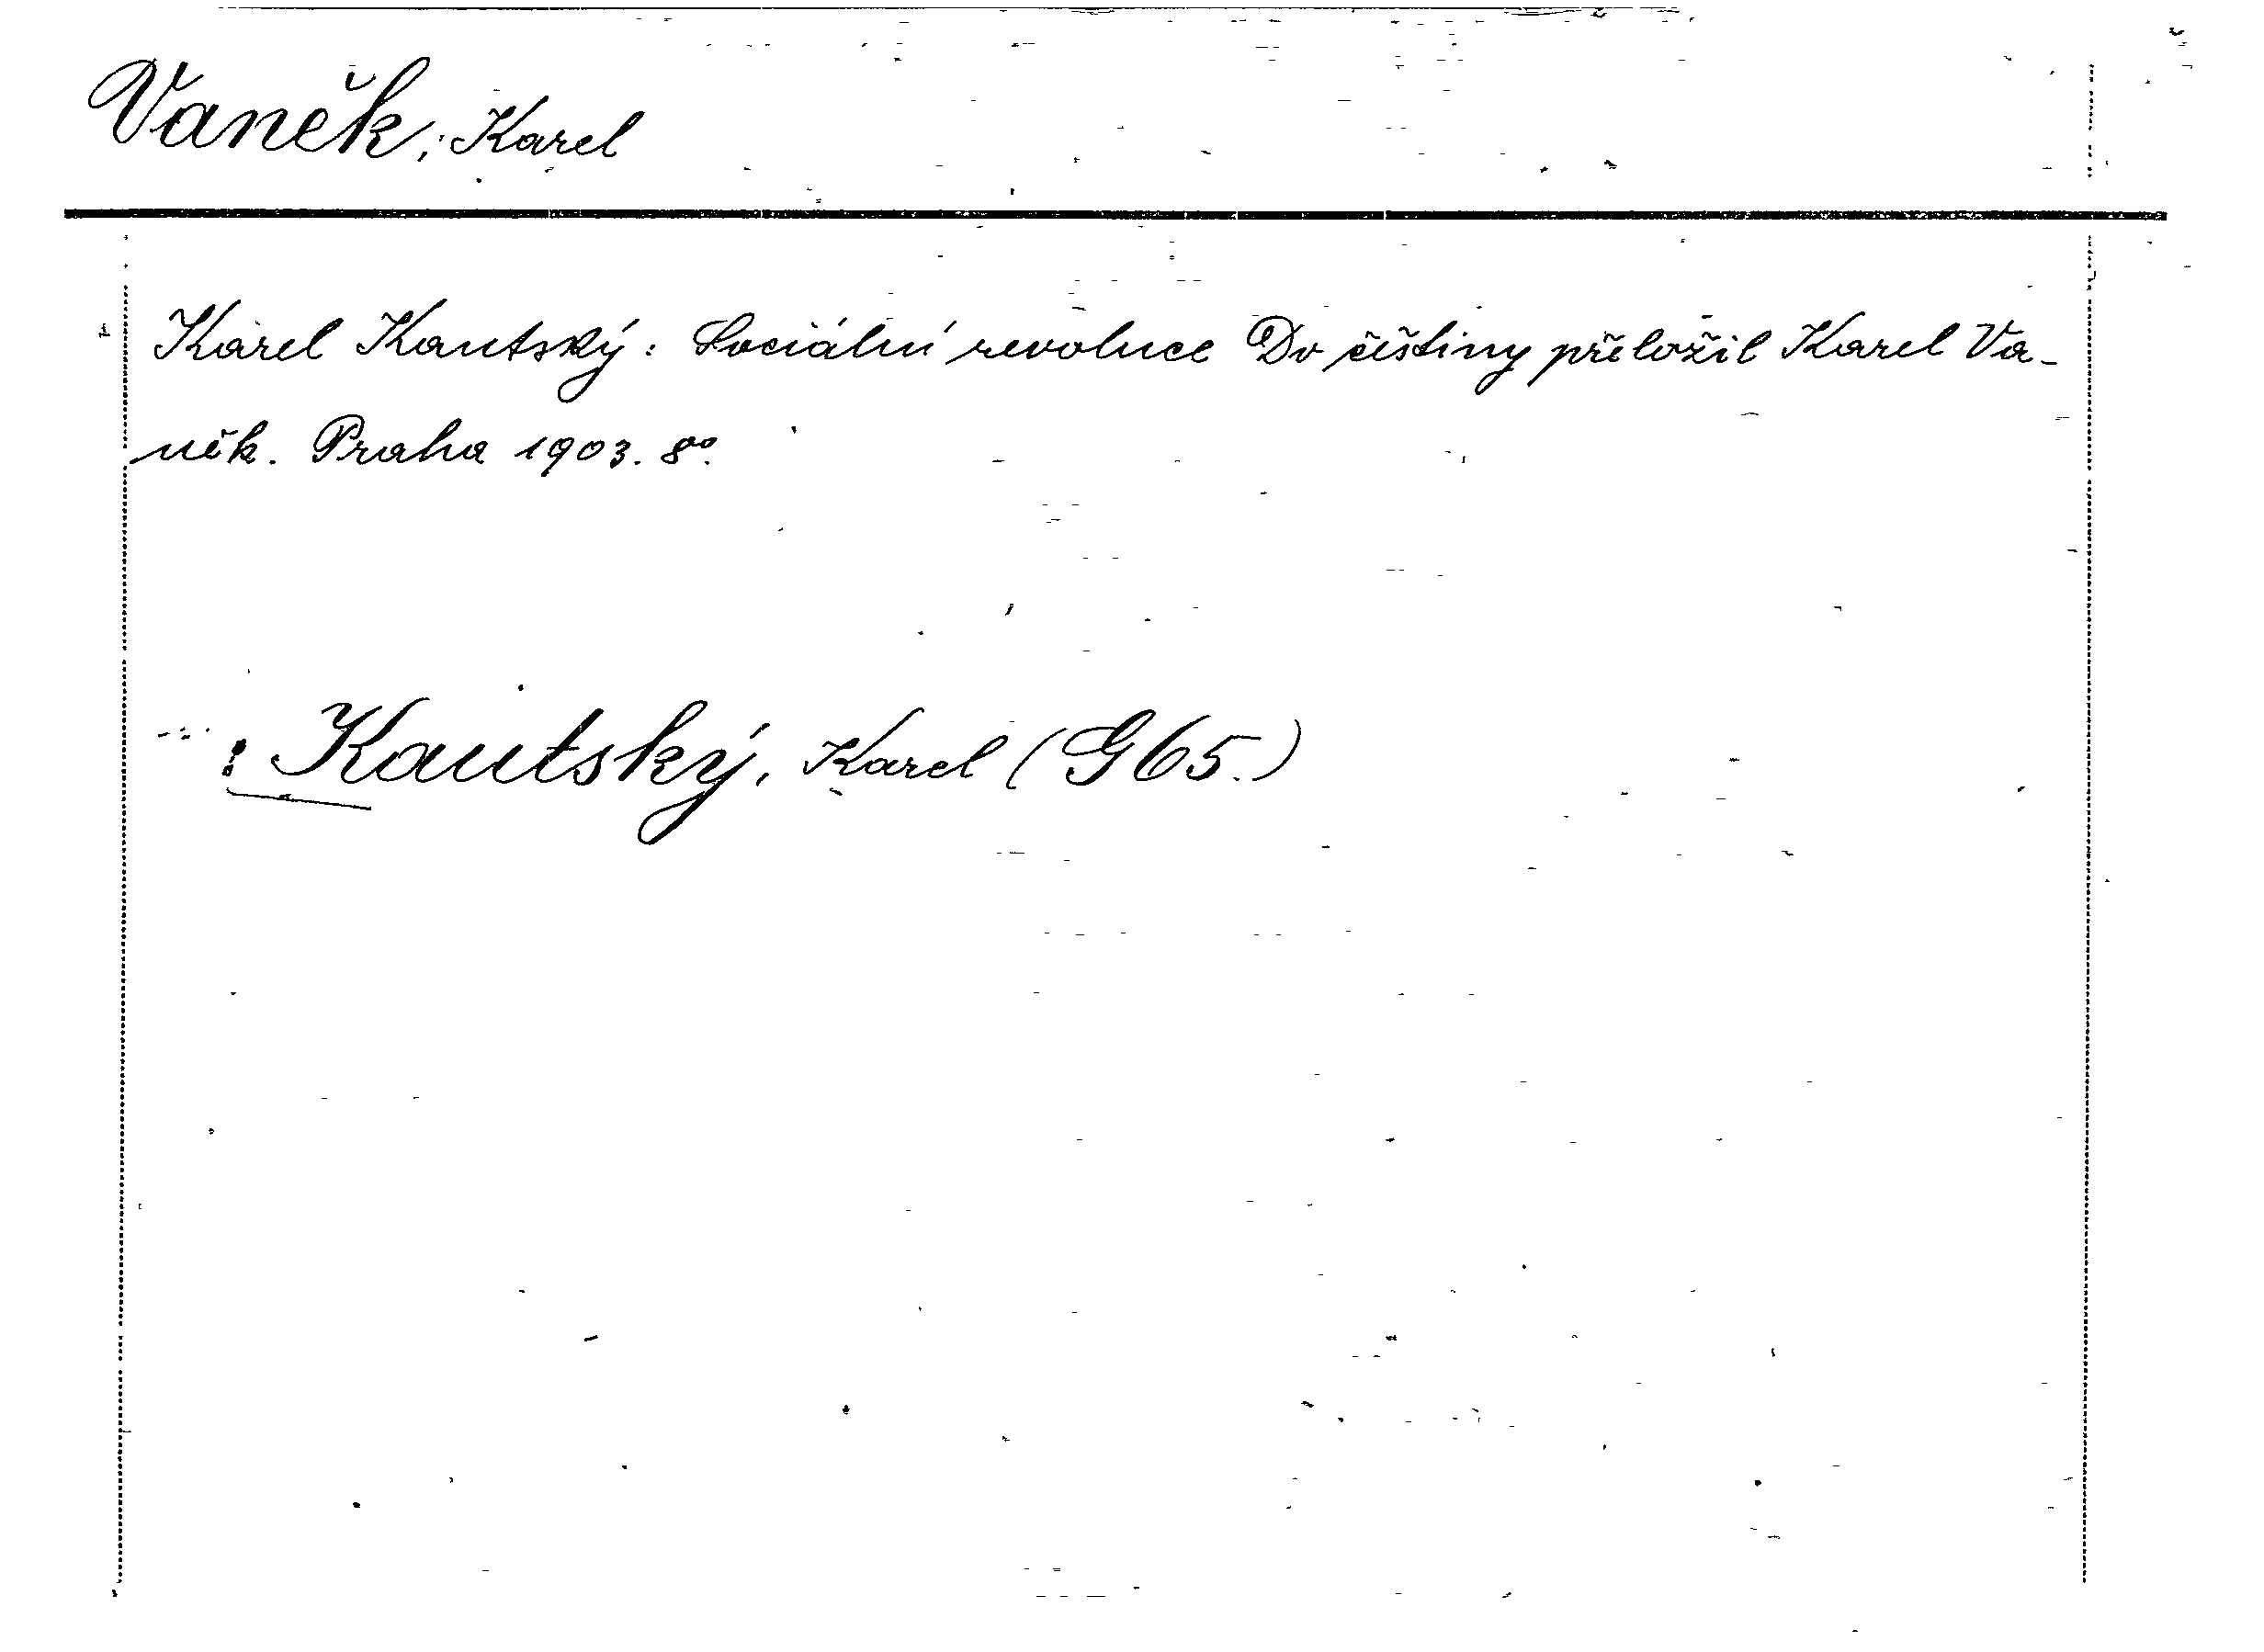 Vaněk, Karel
Karel Kautský: Sociální revoluce Do češtiny přeložil Karel Va-
něk. Praha 1903. 8º.
: Kautský, Karel (G65.)